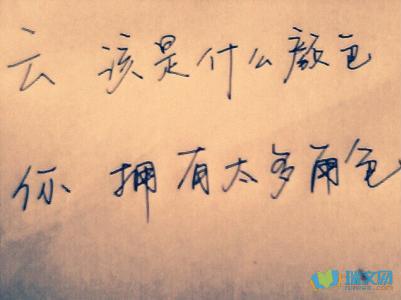 云 该是什么颜色
你 拥有太多角色
瑞文网